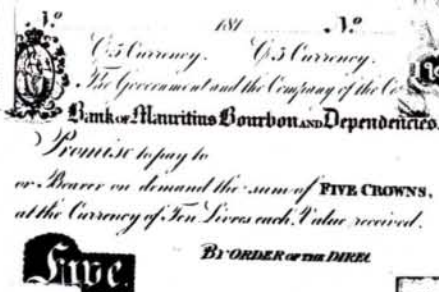 No. 181 No.
C. 5 Currency. C. 5 Currency.
The Government and the Company of the
Bank of Mauritius Bourbon and Dependencies.
Promise to pay to
or Bearer on demand the sum of FIVE CROWNS,
at the Currency of Ten Livres each. Value received.
BY ORDER OF THE
Five.